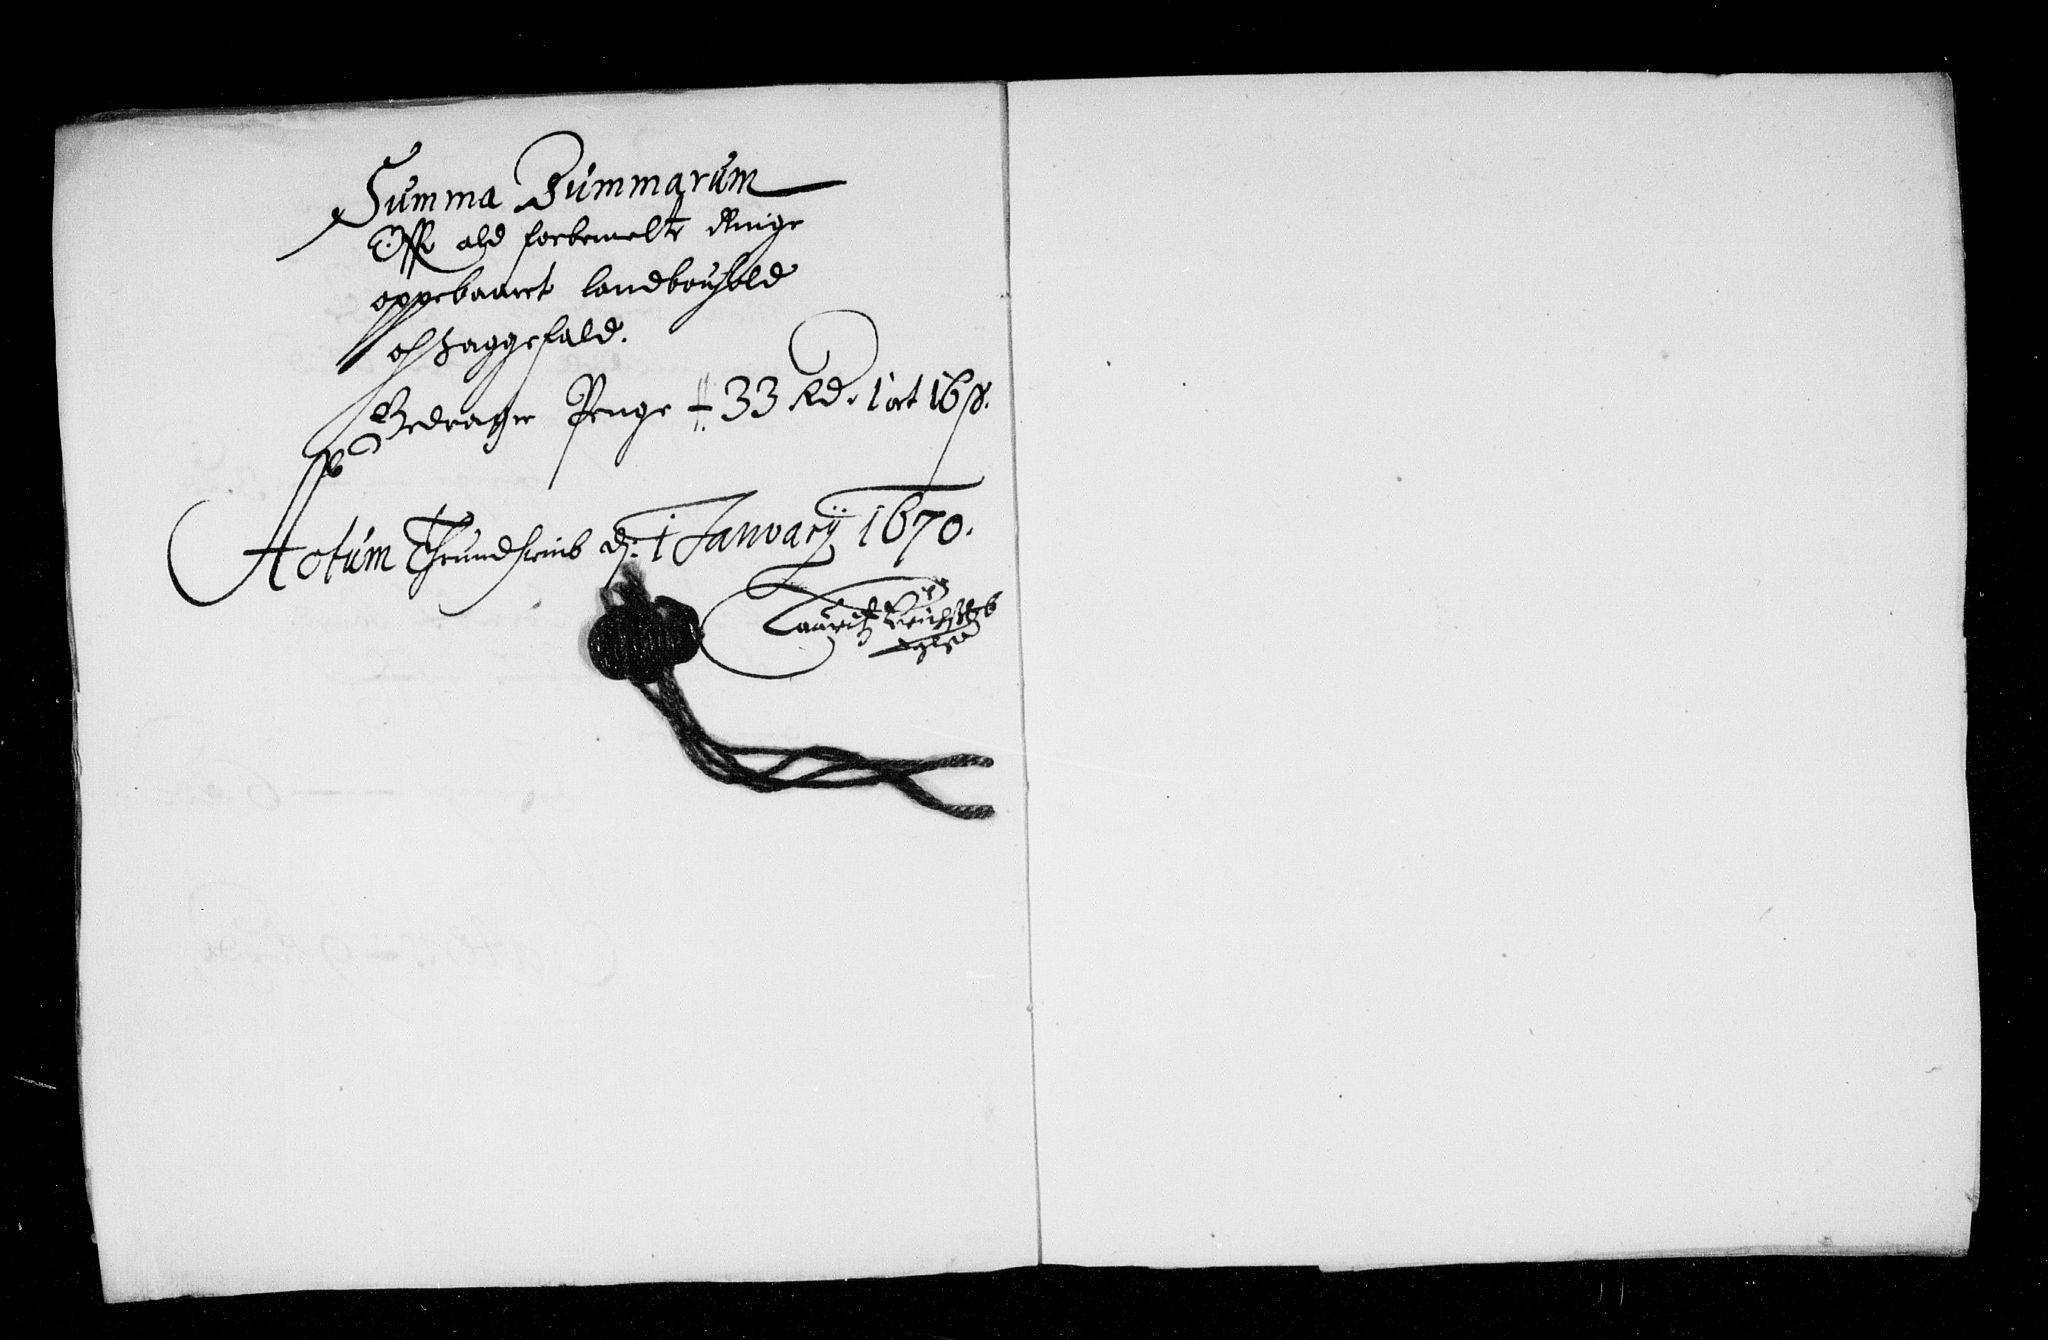 Summa Summarum
Offr ald forbemelte Ringe
oppebaaret landbouhold
og faggefald.
Bedrager Penge 33 Rd. 1 ort 16 s.
Actum Thrundheimb d. 1 January 1670.
Lauritz